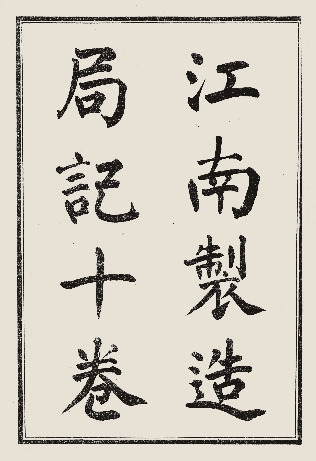 江南製造
局記十卷